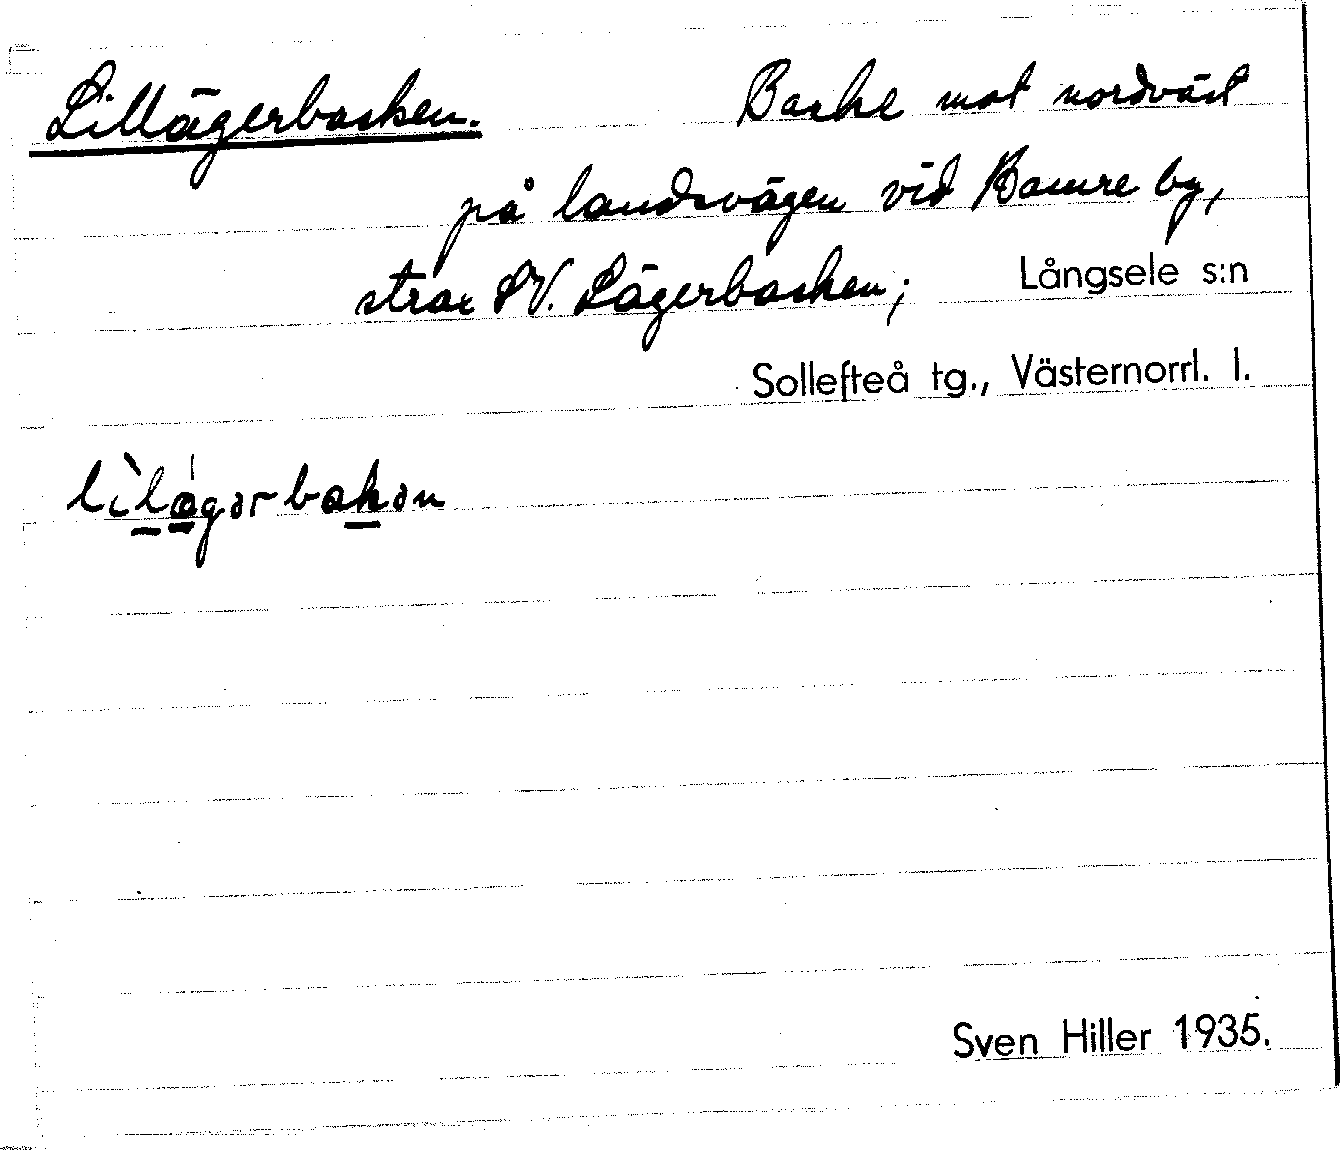 Lillägerbacken. Backe mot nordväst
på landsvägen vid Bamre by,
strax SV. Lägerbacken; Långsele s:n
Sollefteå tg., Västernorrl. l.
Sven Hiller 1935.